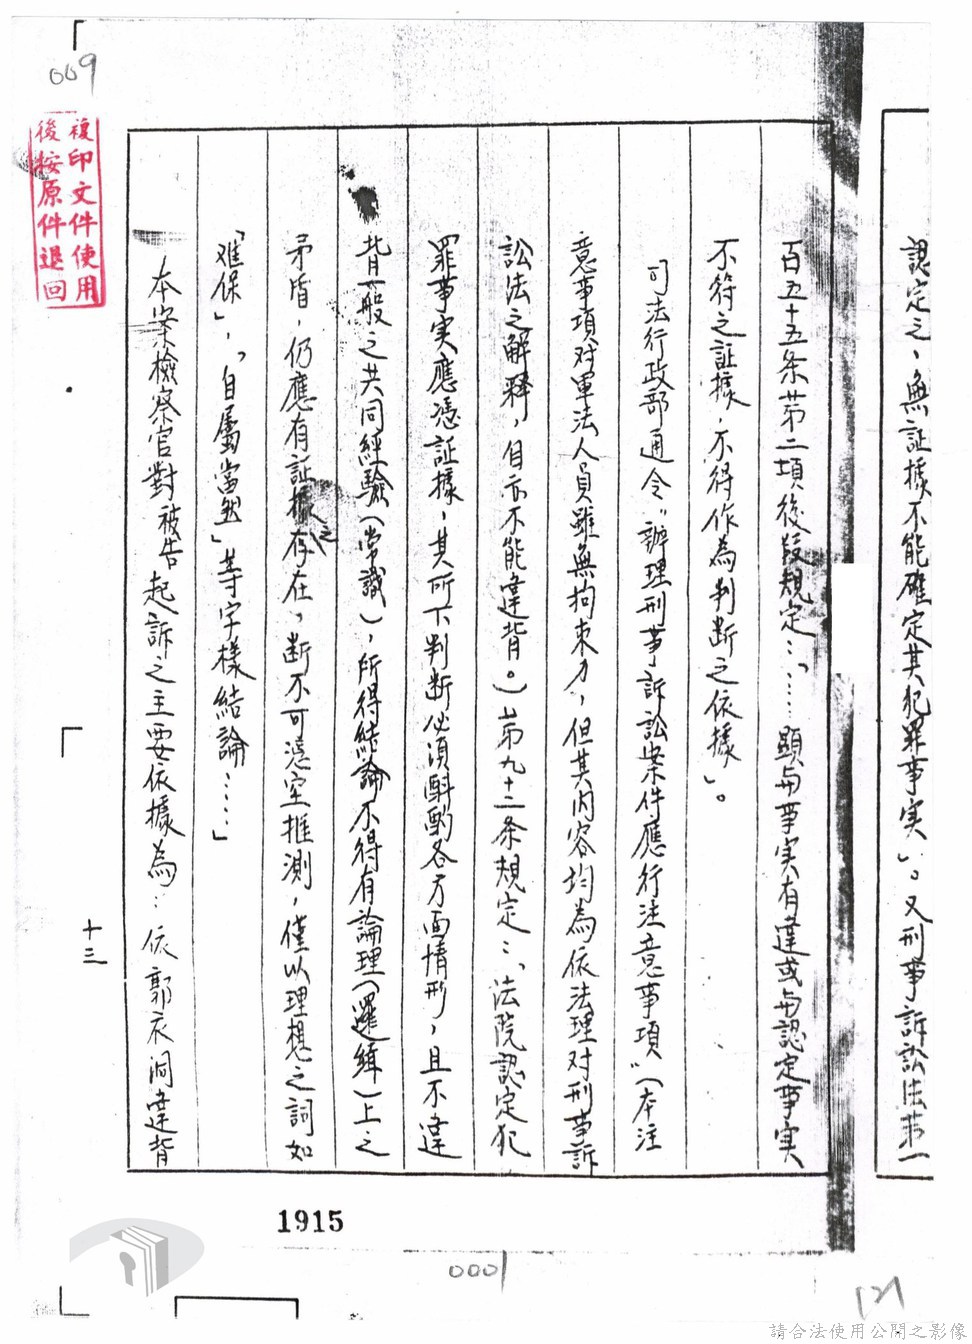 認定之、無証據不能確定其犯罪事实」。又刑事訴訟法第一
百五十五条苐二項後段規定：「……顯与事实有違或与認定事实
不符之証據，不得作為判断之依據」。
司法行政部通令"辦理刑事訴訟案件應行注意事項"（本注
意事項对軍法人員雖無拘束力，但其内容均為依法理对刑事訴
訟法之解釋，自亦不能違背。）苐九十二条規定：「法院認定犯
罪事实應憑証據，其所下判断必須斟酌各方面情形，且不違
背一般之共同經驗（常識），所得結論不得有論理（邏緝）上之
矛盾，仍應有証據之存在，断不可憑空推測，僅以理想之詞如
「难保」，「自屬當然」等字樣結論……」
本案檢察官對被告起訴之主要依據為：依郭衣洞違背
十三
009
複印文件使用
後按原件退回
1915
0001
121
請合法使用公開之影像